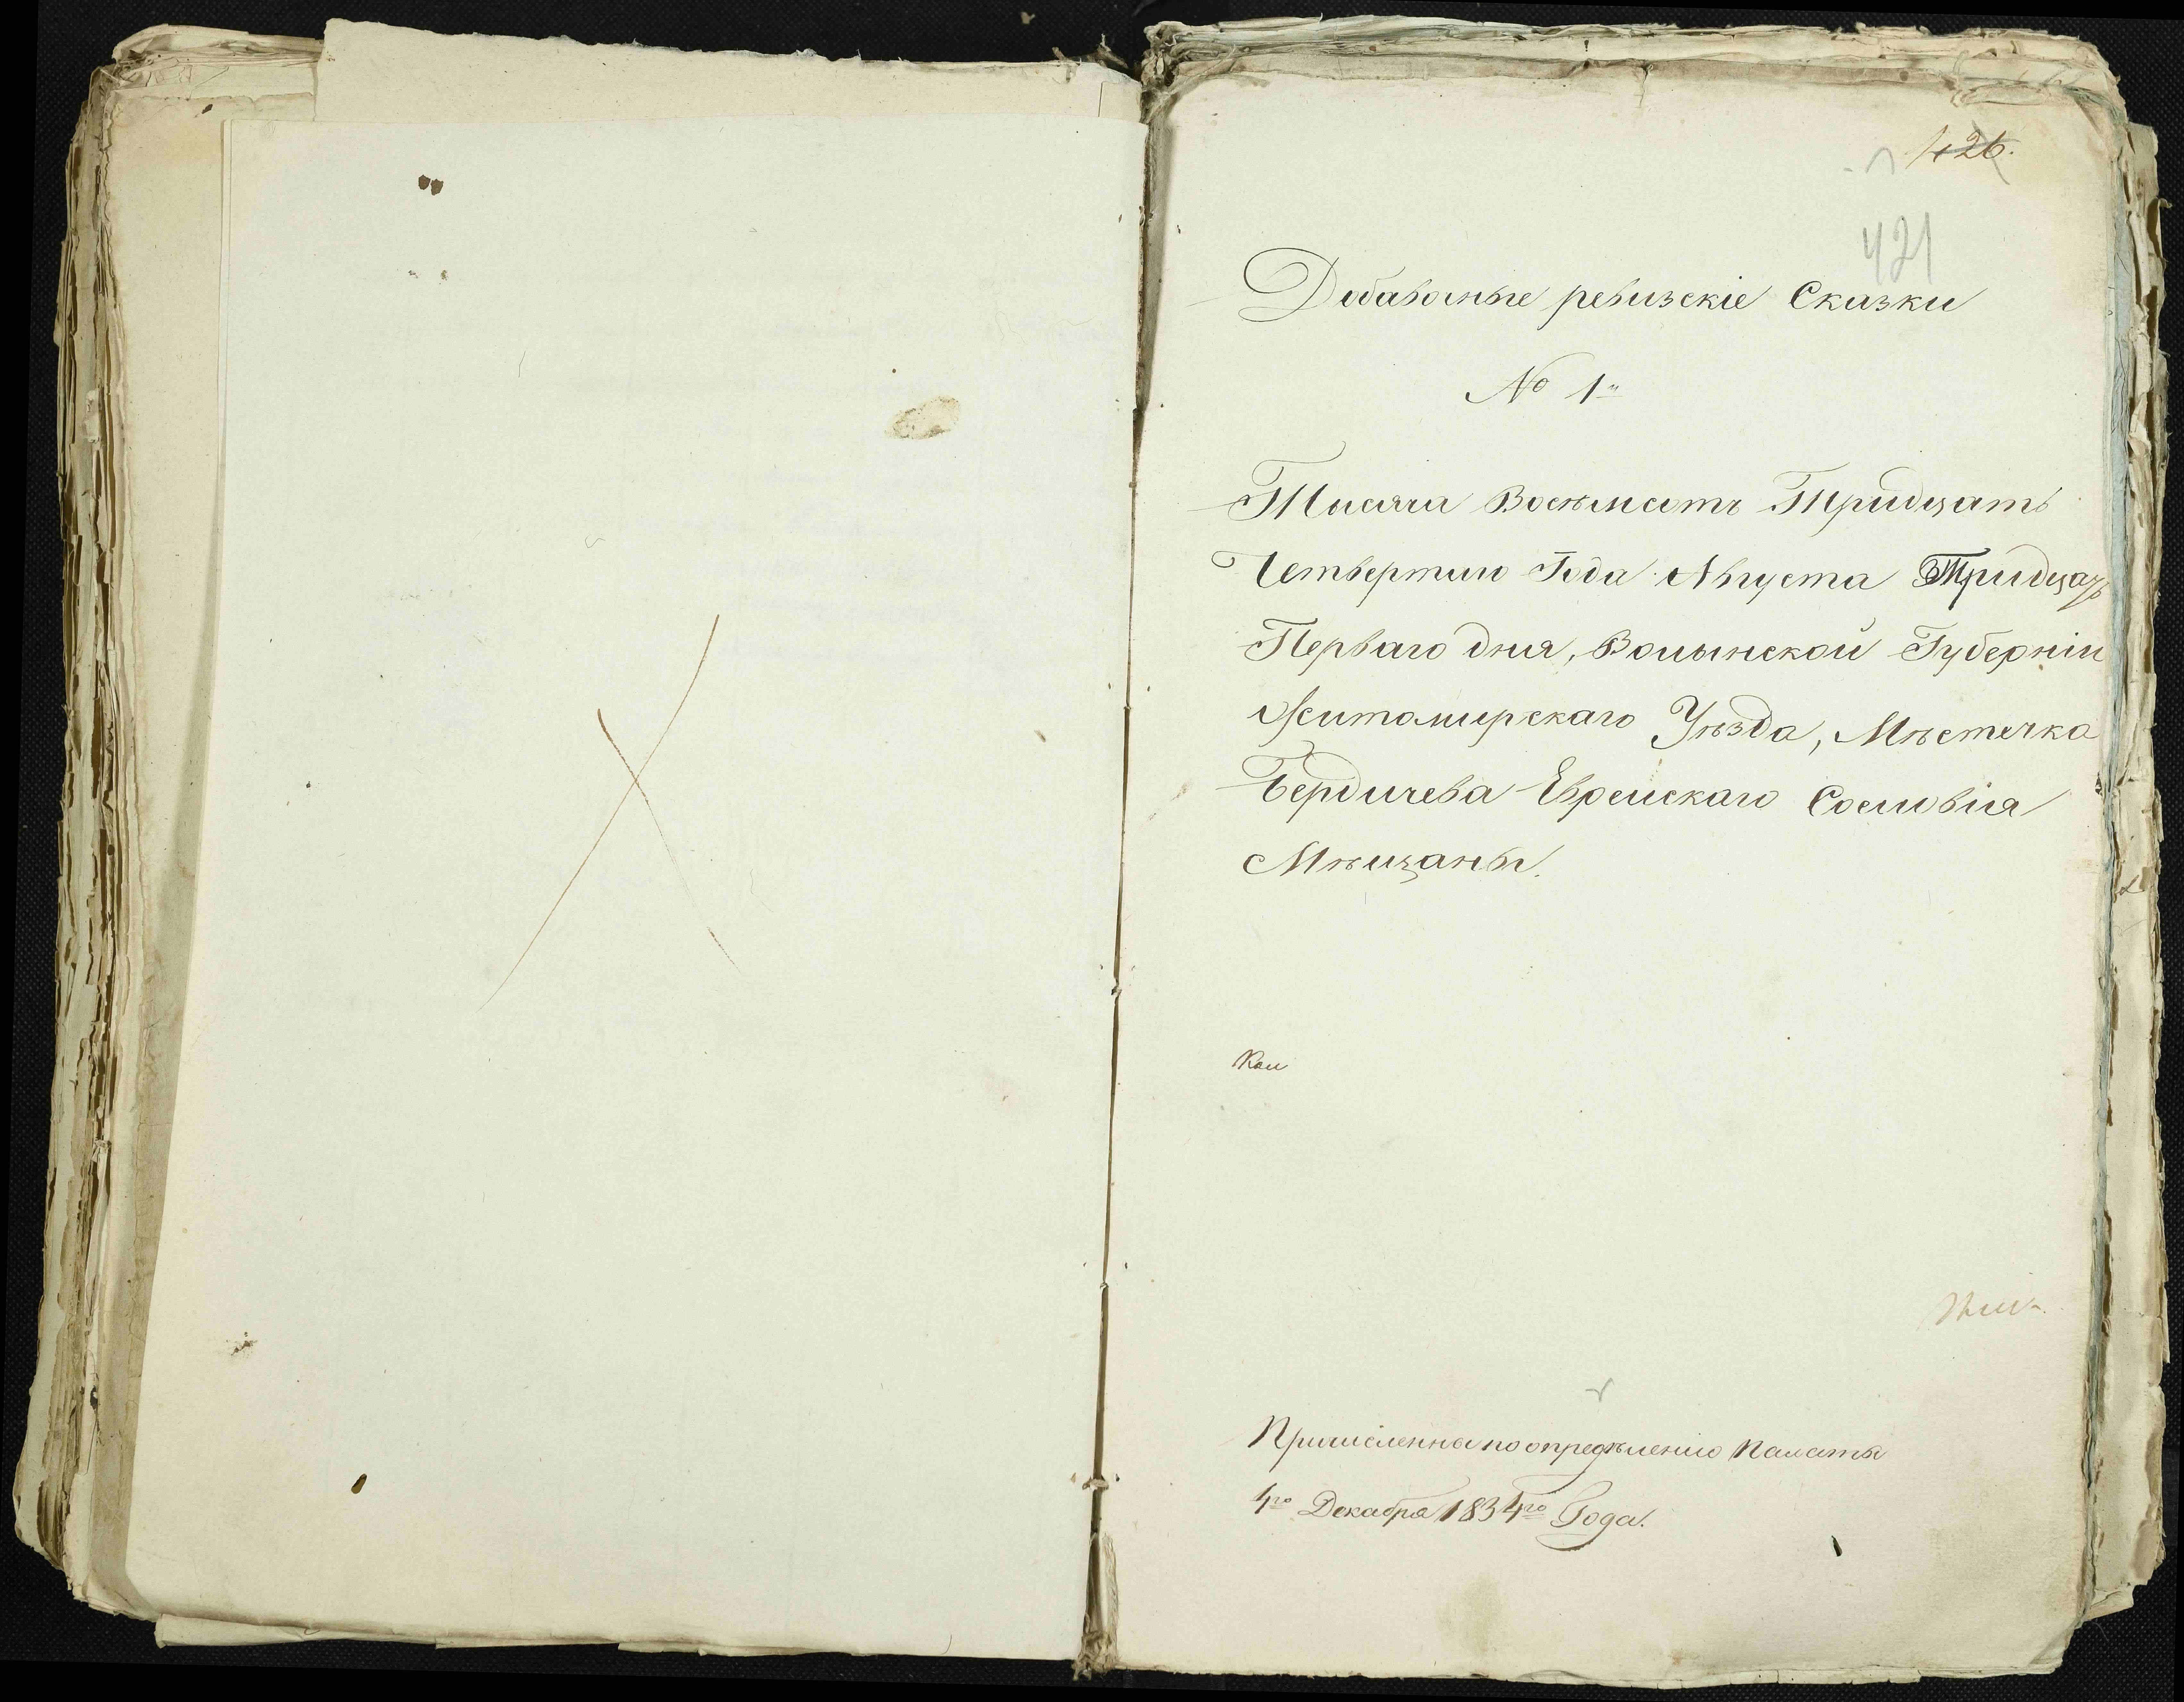 426.
421
Добавочные ревизскіе Сказки
№ 1й
Тысяча Восѣмсотъ Тридцать
Четвертого Года Августа Тридцать
Перваго дня, Волынской Губерніи
Житомирскаго Уѣзда, Мѣстечка
Бердичева Еврейскаго Сословія
Мѣщаны.
Причисленны по опредѣленію Палаты
4го Декабря 1834го Года.